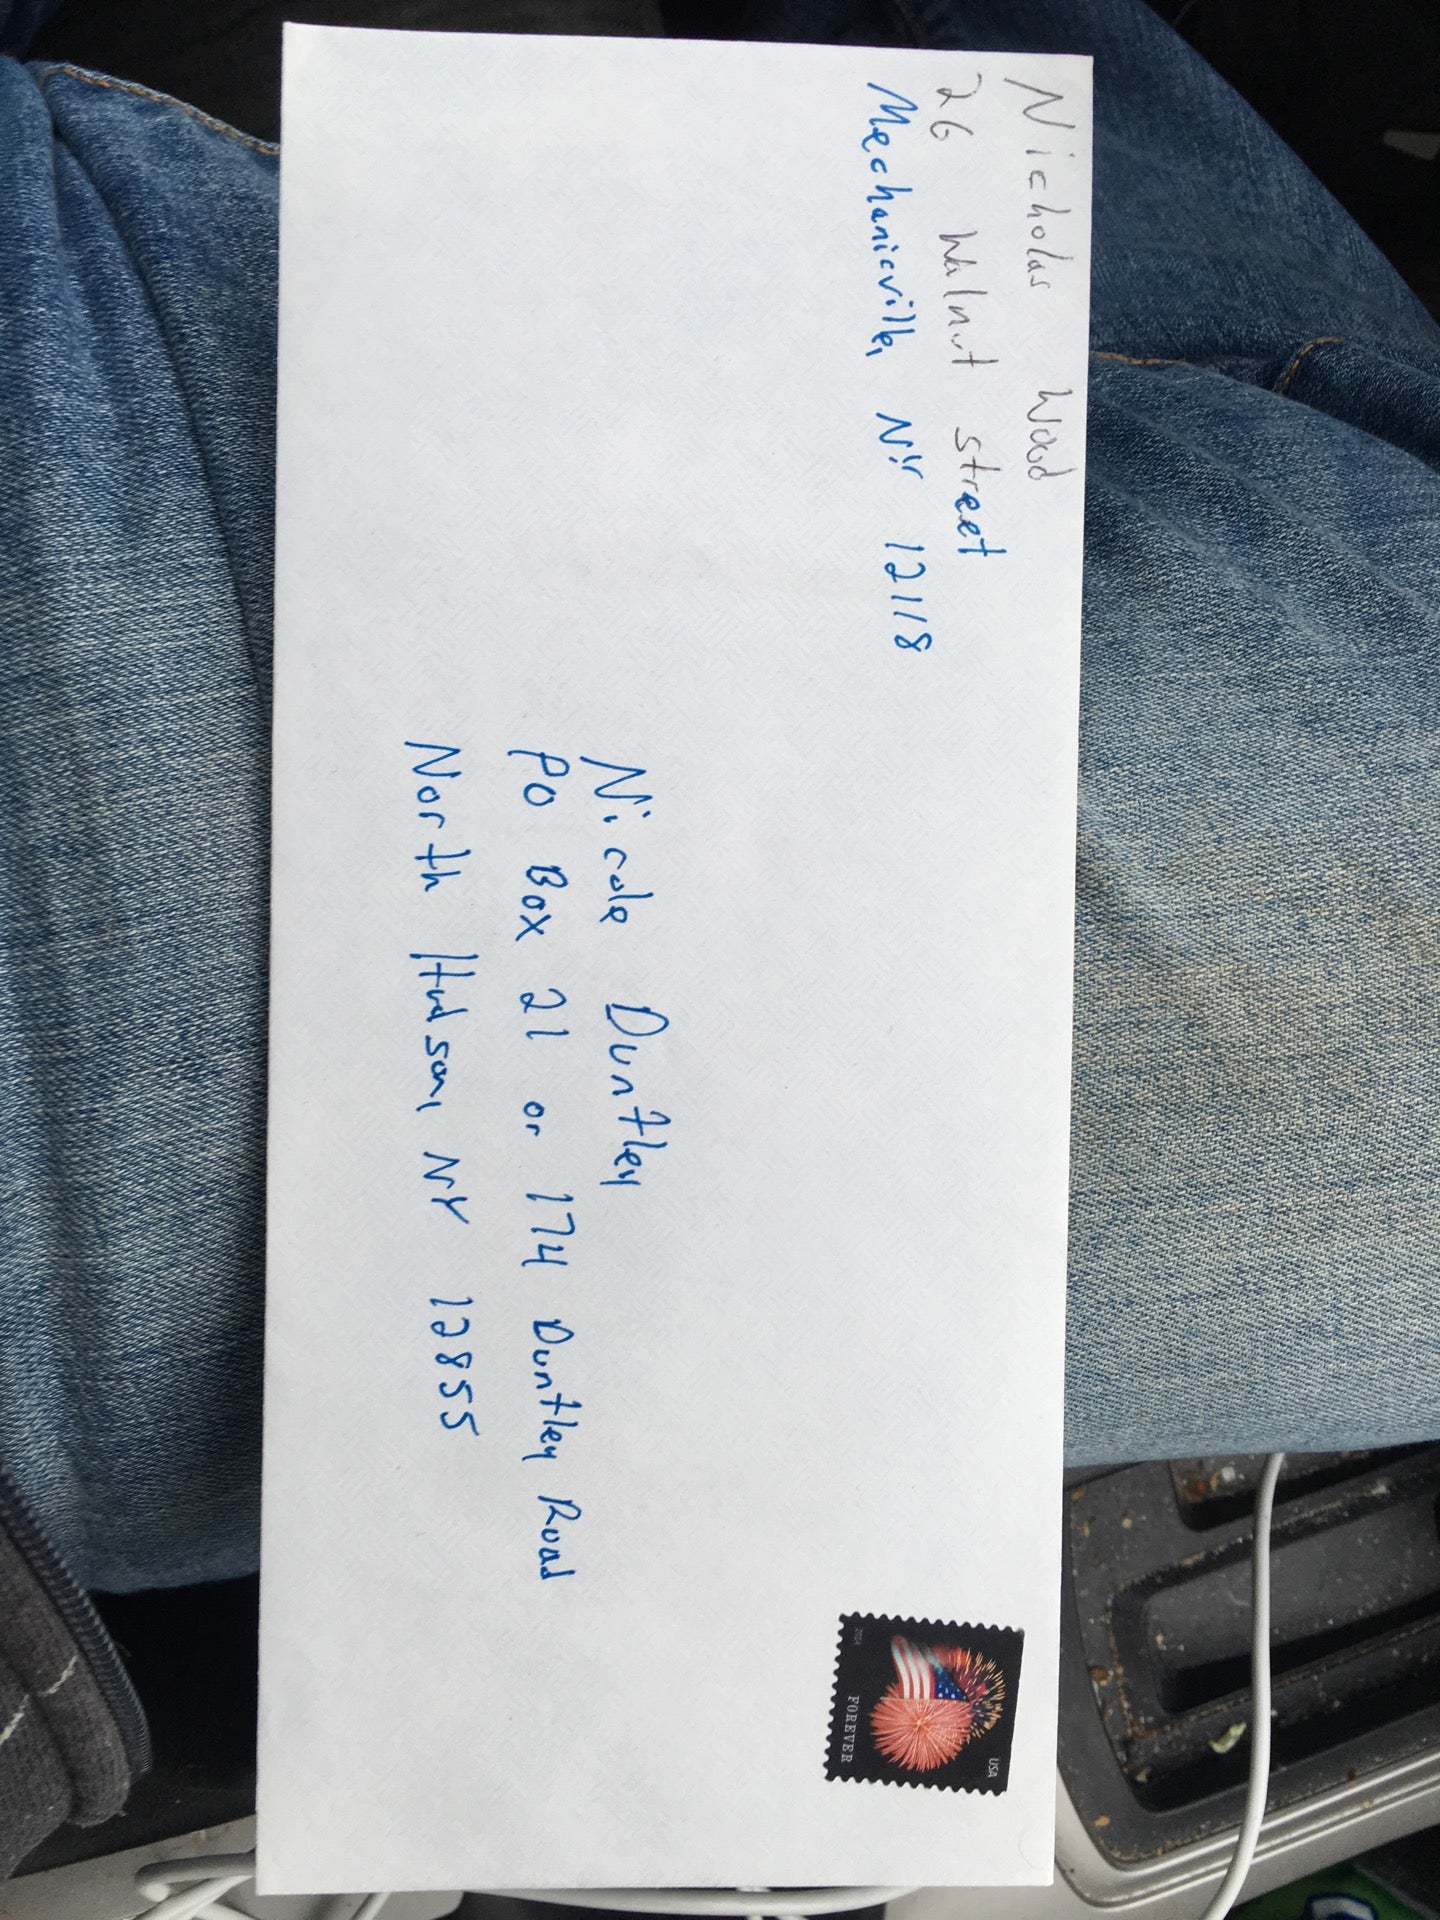 Nicholas Wood
26 Walnut Street
Mechanicville, NY 12118
Nicole Duntley
PO Box 21 or 174 Duntley Road
North Hudson, NY 12855
USA
FOREVER
2014